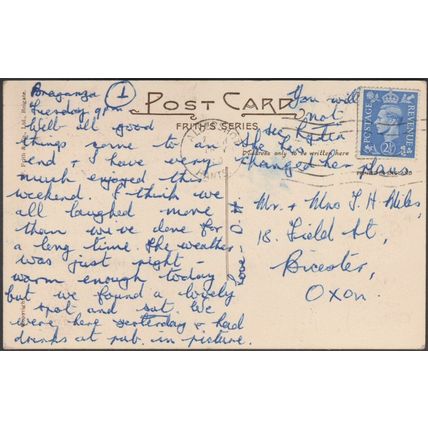 Braganza
①
Tuesday 9pm
Well all good
things come to an
end & I have very
much enjoyed this
weekend. I think we
all laughed more
than we've done for
a long time. The weather
was just right -
warm enough today
but we found a lovely
spot and sat. We
were here yesterday & had
drinks at pub. in picture.
Love - D.H.
POST CARD
FRITH'S SERIES
You will
not
see Katia
She has
changed her plans
Address only to be written here
POSTAGE
REVENUE
2½
Mr. & Mrs T. H. Miles,
18. Field St,
Bicester,
Oxon.
Ltd., Reigate.